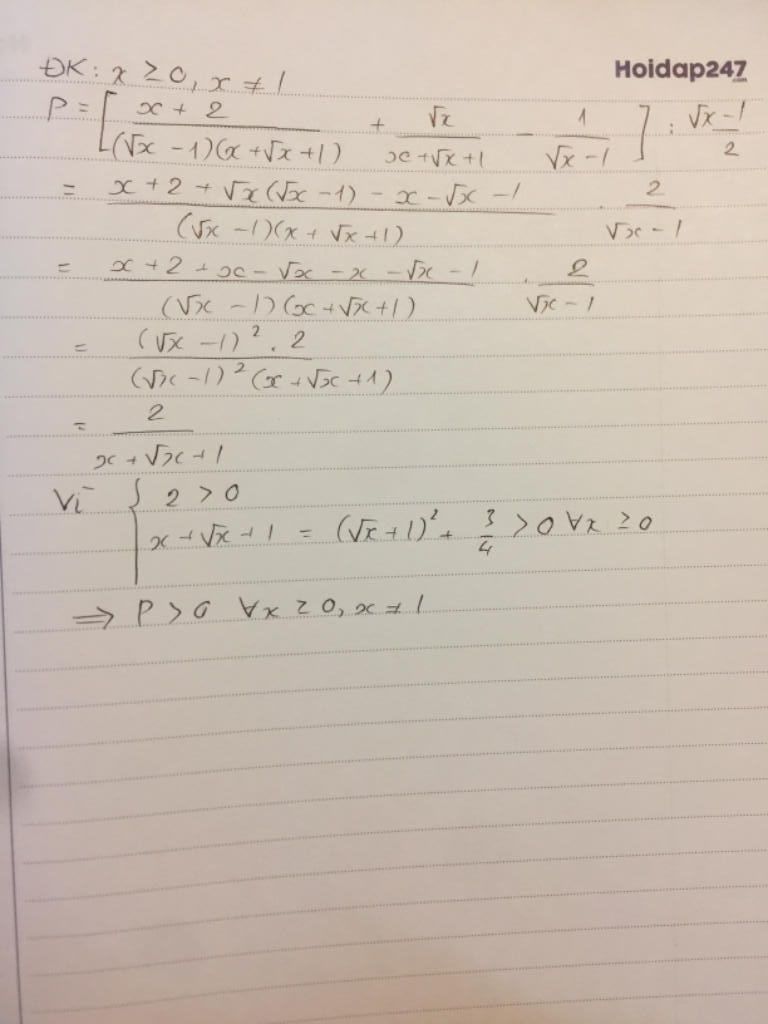 ĐK: x ≥ 0, x ≠ 1
Hoidap247.com
P = [ (x + 2)/((√x - 1)(x + √x + 1)) + √x/(x + √x + 1) - 1/(√x - 1) ] : (√x - 1)/2
= (x + 2 + √x(√x - 1) - x - √x - 1)/((√x - 1)(x + √x + 1)) . 2/(√x - 1)
= (x + 2 + x - √x - x - √x - 1)/((√x - 1)(x + √x + 1)) . 2/(√x - 1)
= ((√x - 1)² . 2)/((√x - 1)²(x + √x + 1))
= 2/(x + √x + 1)
Vì { 2 > 0
x + √x + 1 = (√x + 1)² + 3/4 > 0 ∀x ≥ 0
⇒ P > 0 ∀x ≥ 0, x ≠ 1